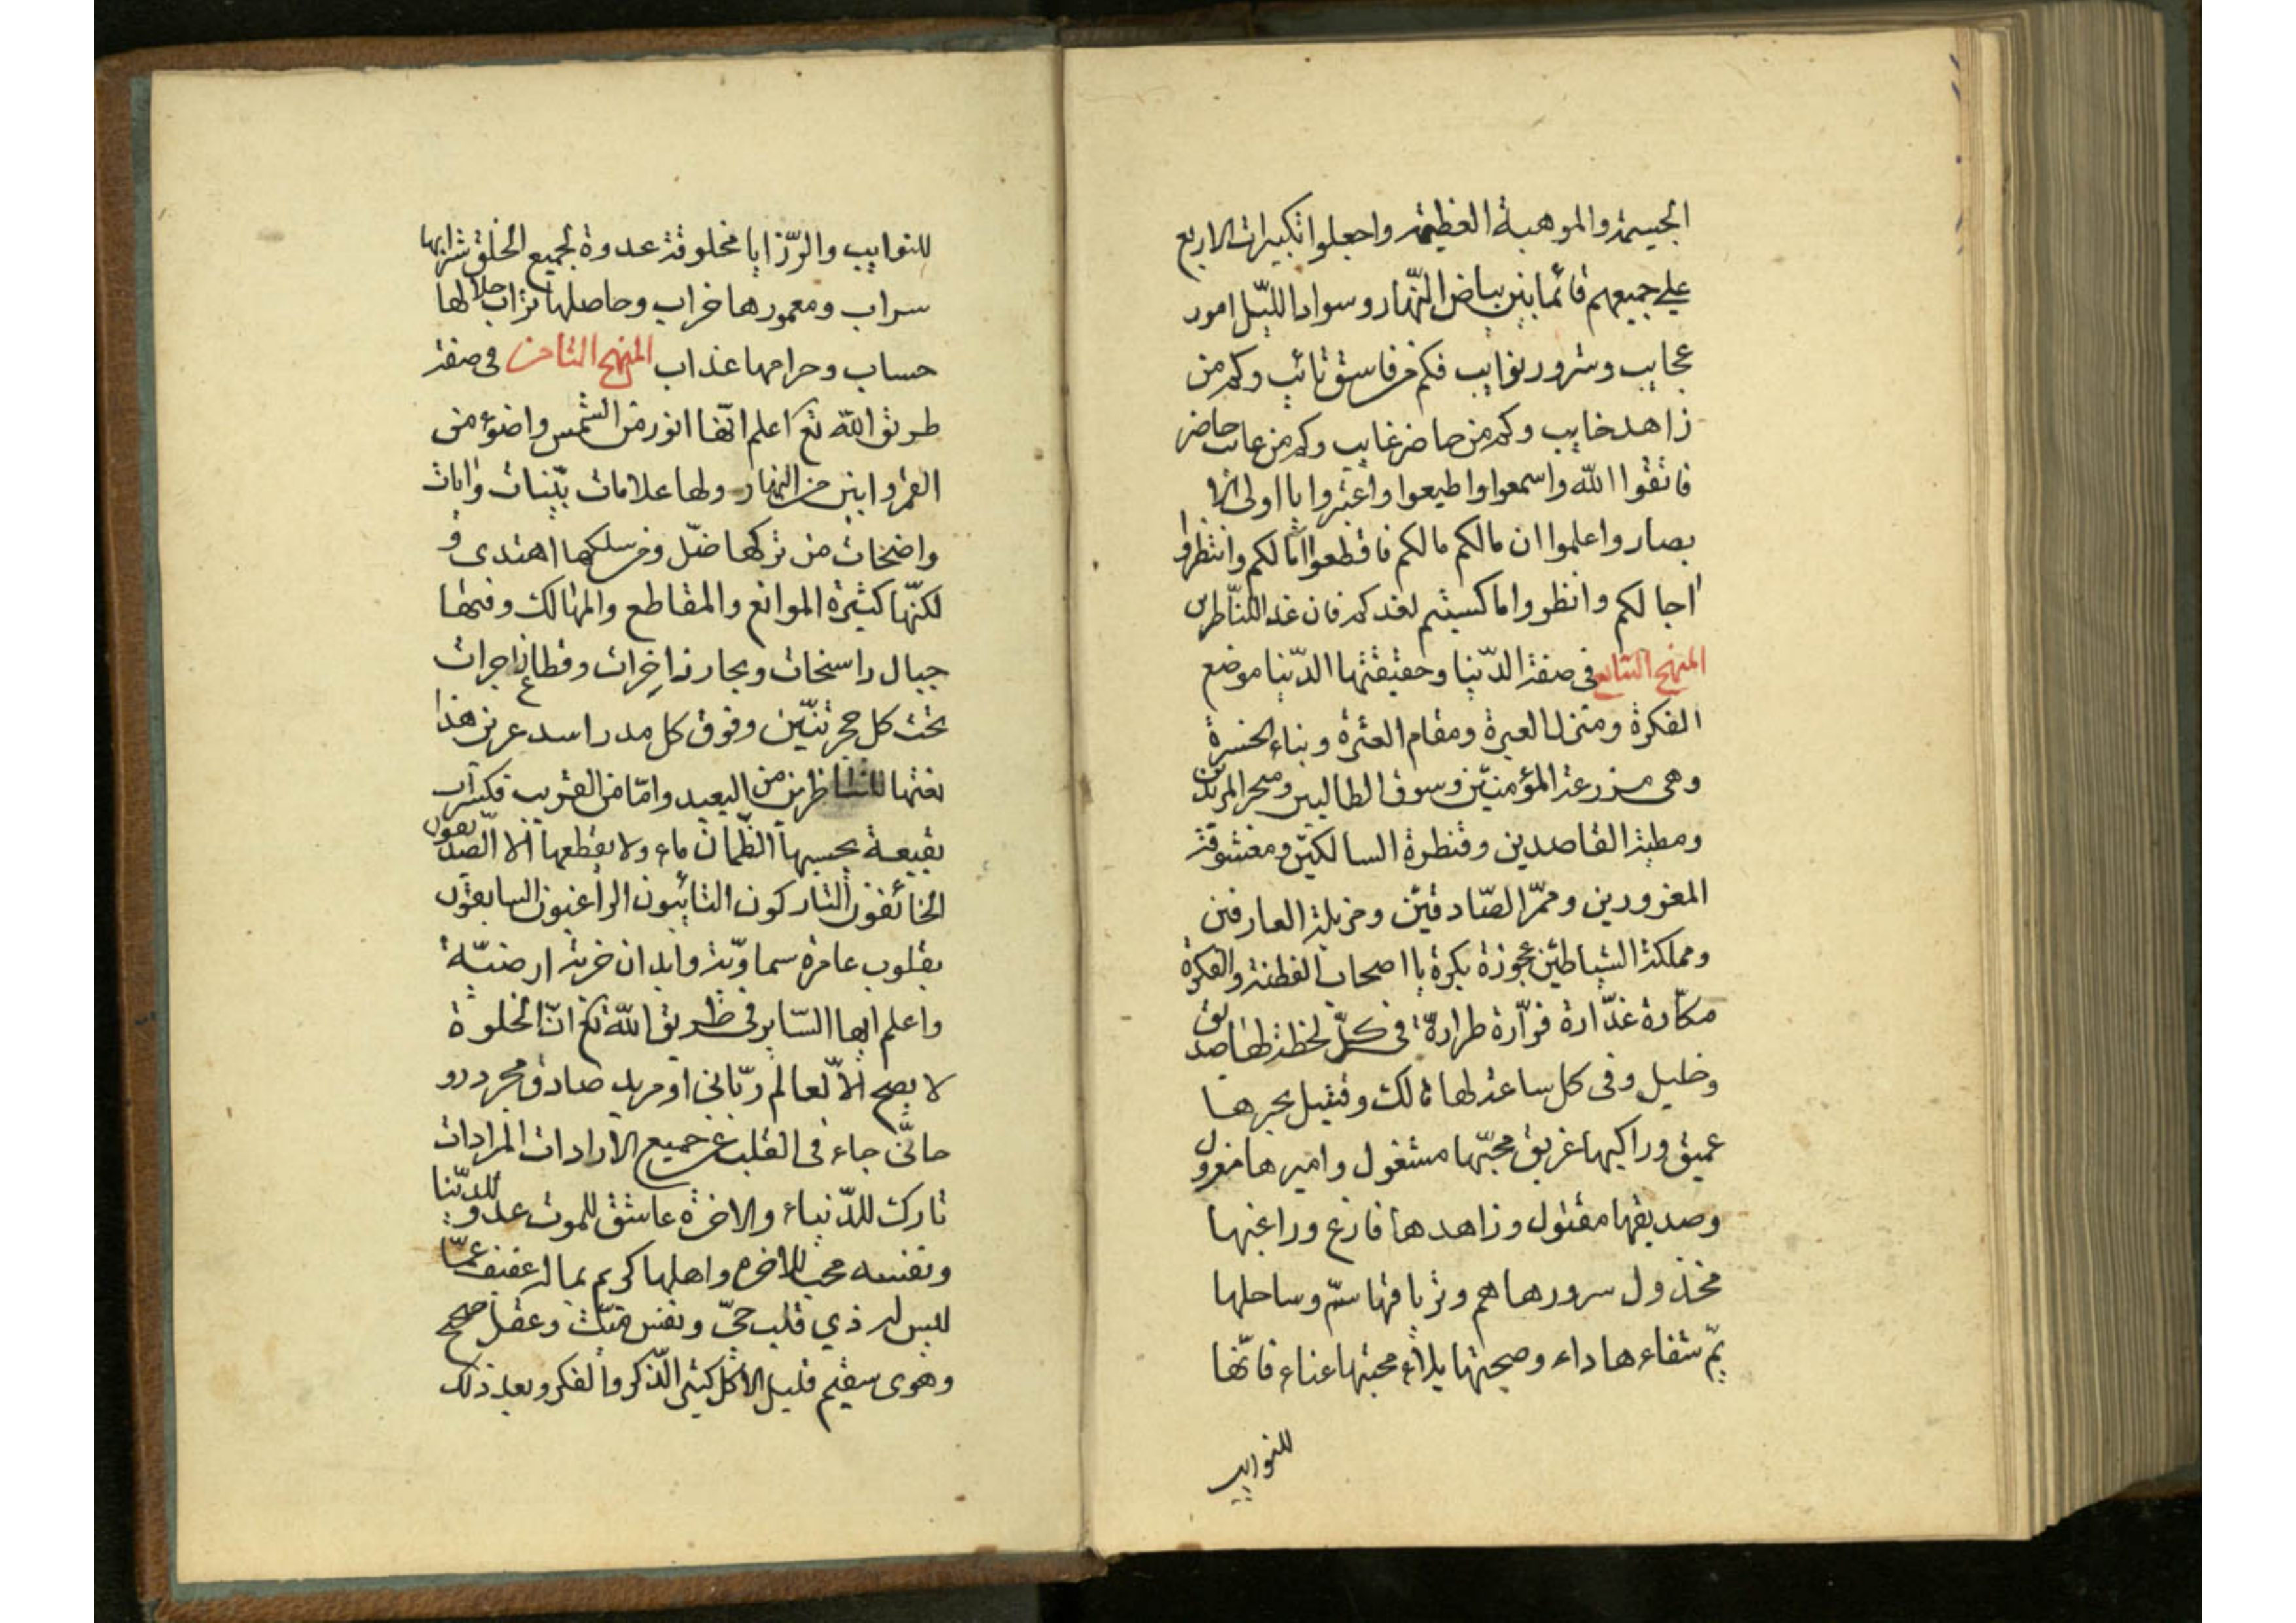 الجسيمة والموهبة العظيمة واجعلوا تكبيرات الاربع
على جميعهم فانما بين بياض النهار وسواد الليل امور
عجايب وشرور نوايب فكم من فاسق تائب وكم من
زاهد خايب وكم من حاضر غايب وكم من غائب حاضر
فاتقوا الله واسمعوا واطيعوا واعتبروا يا اولى الا
بصار واعلموا ان مالكم مالكم فاقطعوا امالكم وانتظروا
اجالكم وانظروا ما كسبتم لغدكم فان غدا للناظرين
المنهج السابع فى صفة الدنيا وحقيقتها الدنيا موضع
الفكرة ومنزل العبرة ومقام العثرة وبناء الحسرة
وهى مزرعة المؤمنين وسوق الطالبين ومتجر المريدين
ومطية القاصدين وقنطرة السالكين ومعشوقة
المغرورين وممرّ الصّادقين ومزبلة العارفين
ومملكة الشياطين عجوزة بكرة يا اصحاب الفطنة والفكرة
مكّارة غدّارة فرّارة طرارة فى كلّ لحظة لها صديق
وخليل وفى كل ساعة لها هالك وقتيل بحرها
عميق وراكبها غريق محبّها مشغول واميرها معزول
وصديقها مقتول وزاهدها فارغ وراغبها
مخذول سرورها هم وترياقها سمّ وساحلها
يمّ شفاءها داء وصحبتها بلاء محبتها عناء فانّها
للنوايب
للنوايب والرّزايا مخلوقة عدوة لجميع الخلق شرابها
سراب ومعمورها خراب وحاصلها تراب حلالها
حساب وحرامها عذاب المنهج الثامن فى صفة
طريق الله تع اعلم انّها انور من الشمس واضوء من
القمر وابين من النهار ولها علامات بيّنات وايات
واضحات من تركها ضلّ ومن سلكها اهتدى و
لكنّها كثيرة الموانع والمقاطع والمهالك وفيها
جبال راسخات وبحار زاخرات وقطاع زاجرات
تحت كل حجر تنّين وفوق كل مدر اسد عرين هذا
نعتها للناظرين من البعيد وامّا من القريب فكسراب
بقيعة يحسبها الظمآن ماء ولا يقطعها الا الصّديقون
الخائفون التاركون التائبون الراغبون السابقون
بقلوب عامرة سماويّة وابدان خربة ارضيّة
واعلم ايها السّاير فى طريق الله تع انّ الخلوة
لا يصح الّا لعالم ربّانى او مريد صادق مجرد رو
حانّى جاء فى القلب عن جميع الارادات المرادات
تارك للدّنياء والاخرة عاشق للموت عدوّ للدنيا
ونفسه محب للاخرة واهلها كريم بماله عفيف عمّا
ليس له ذي قلب حىّ ونفس ميّت وعقل صحيح
وهوى سقيم قليل الاكل كثير الذّكر والفكر وبعد ذلك